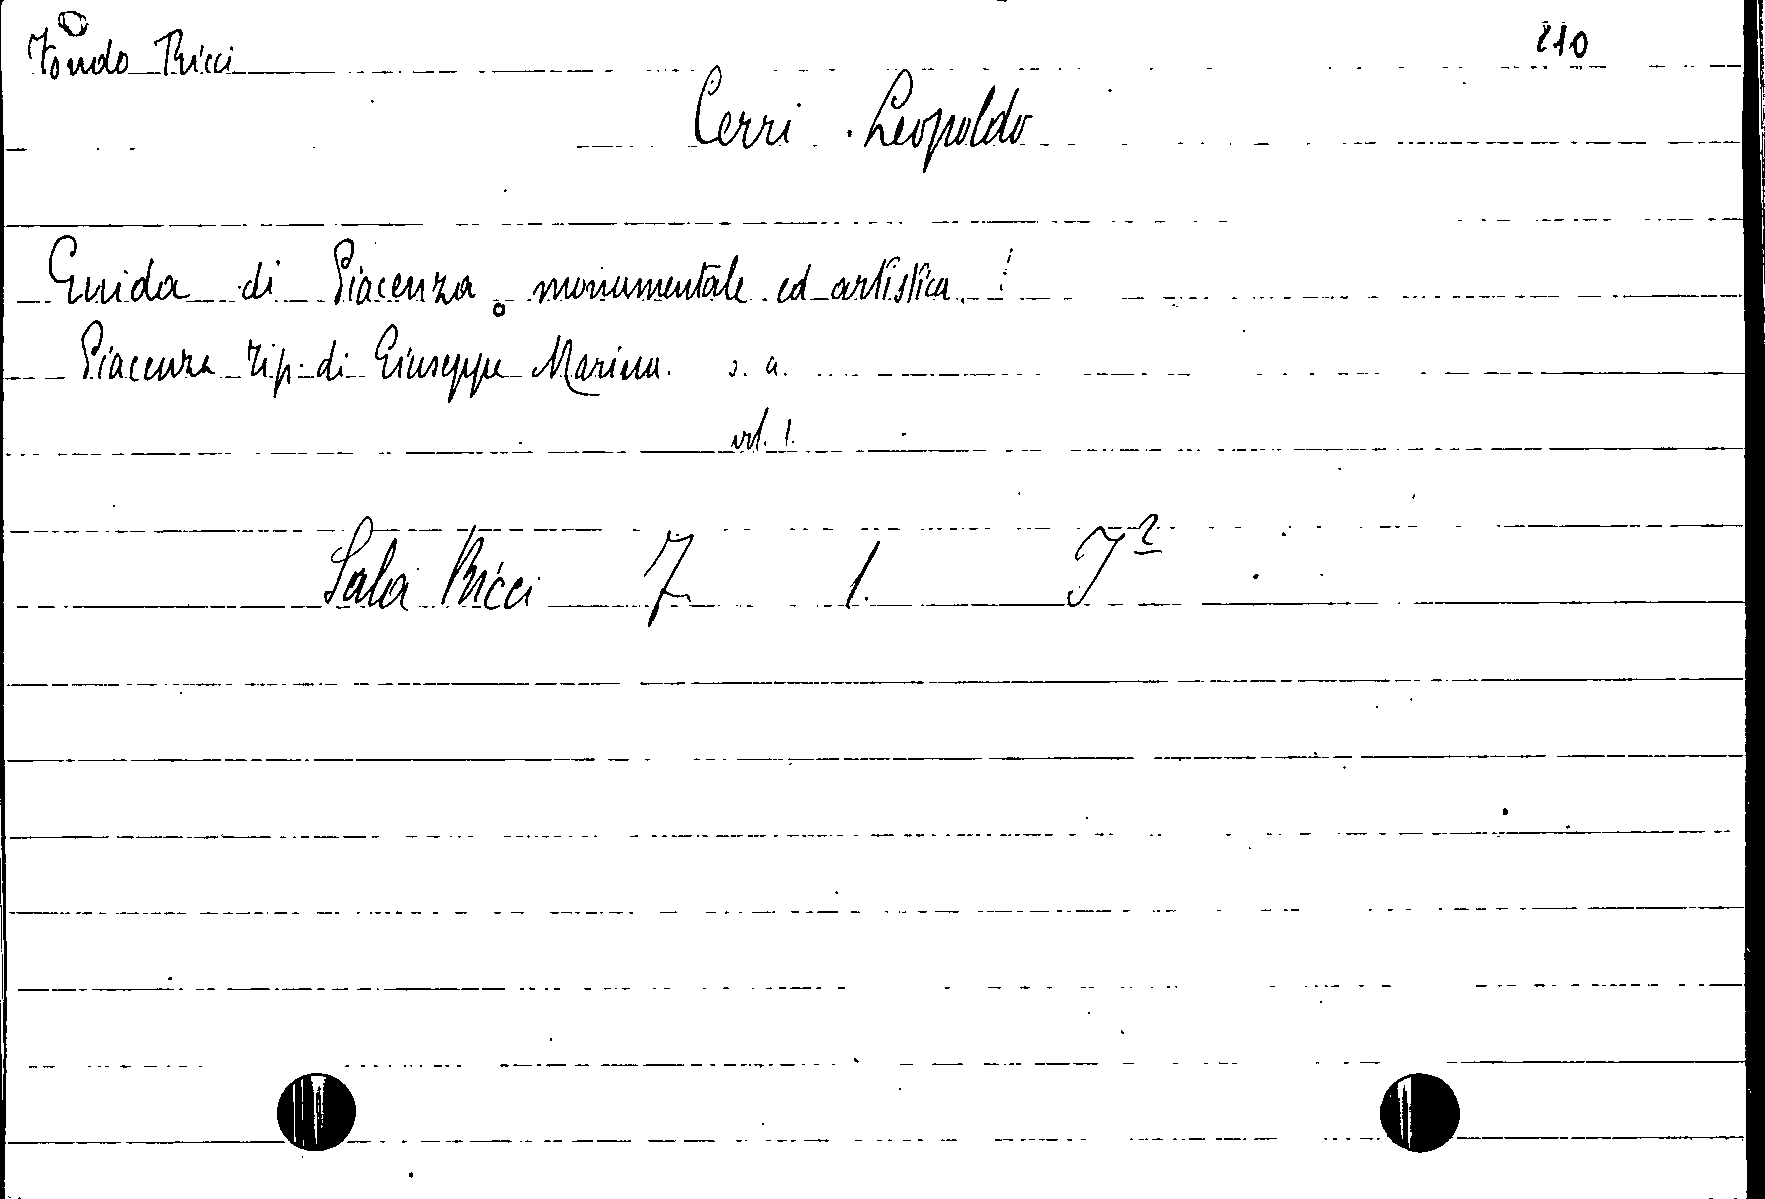 Fondo Ricci 210
Cerri Leopoldo
Guida di Piacenza monumentale ed artistica.
Piacenza tip. di Giuseppe Marina. s. a.
vol. 1.
Sala Ricci 7 1.